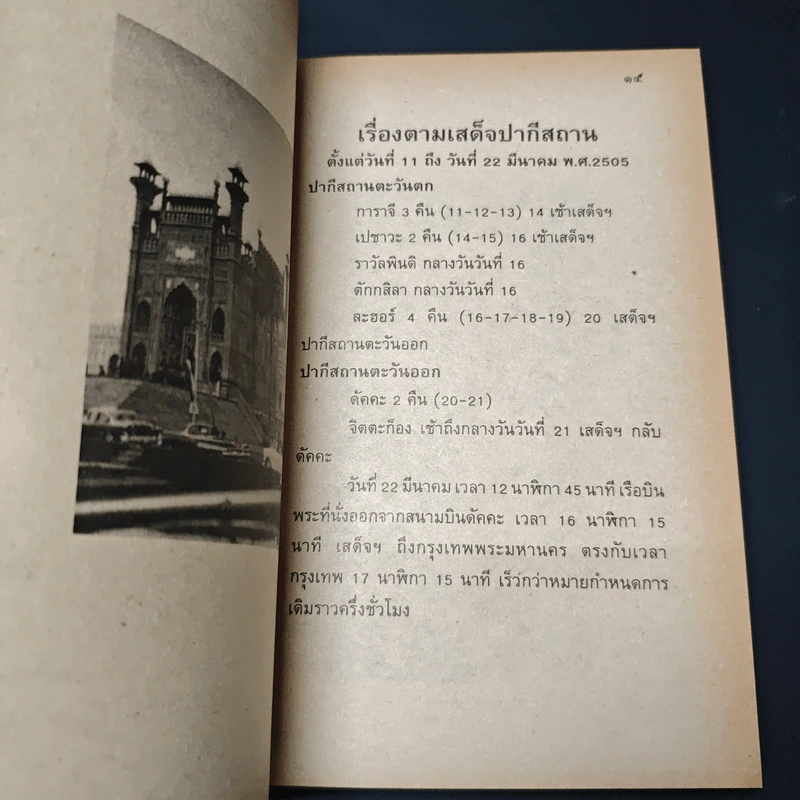 ๑๕
เรื่องตามเสด็จปากีสถาน
ตั้งแต่วันที่ 11 ถึง วันที่ 22 มีนาคม พ.ศ.2505
ปากีสถานตะวันตก
การาจี 3 คืน (11-12-13) 14 เช้าเสด็จฯ
เปชาวะ 2 คืน (14-15) 16 เช้าเสด็จฯ
ราวัลพินดิ กลางวันวันที่ 16
ตักกสิลา กลางวันวันที่ 16
ละฮอร์ 4 คืน (16-17-18-19) 20 เสด็จฯ
ปากีสถานตะวันออก
ปากีสถานตะวันออก
ดัคคะ 2 คืน (20-21)
จิตตะก็อง เช้าถึงกลางวันวันที่ 21 เสด็จฯ กลับ
ดัคคะ
วันที่ 22 มีนาคม เวลา 12 นาฬิกา 45 นาที เรือบิน
พระที่นั่งออกจากสนามบินดัคคะ เวลา 16 นาฬิกา 15
นาที เสด็จฯ ถึงกรุงเทพพระมหานคร ตรงกับเวลา
กรุงเทพ 17 นาฬิกา 15 นาที เร็วกว่าหมายกำหนดการ
เดิมราวครึ่งชั่วโมง